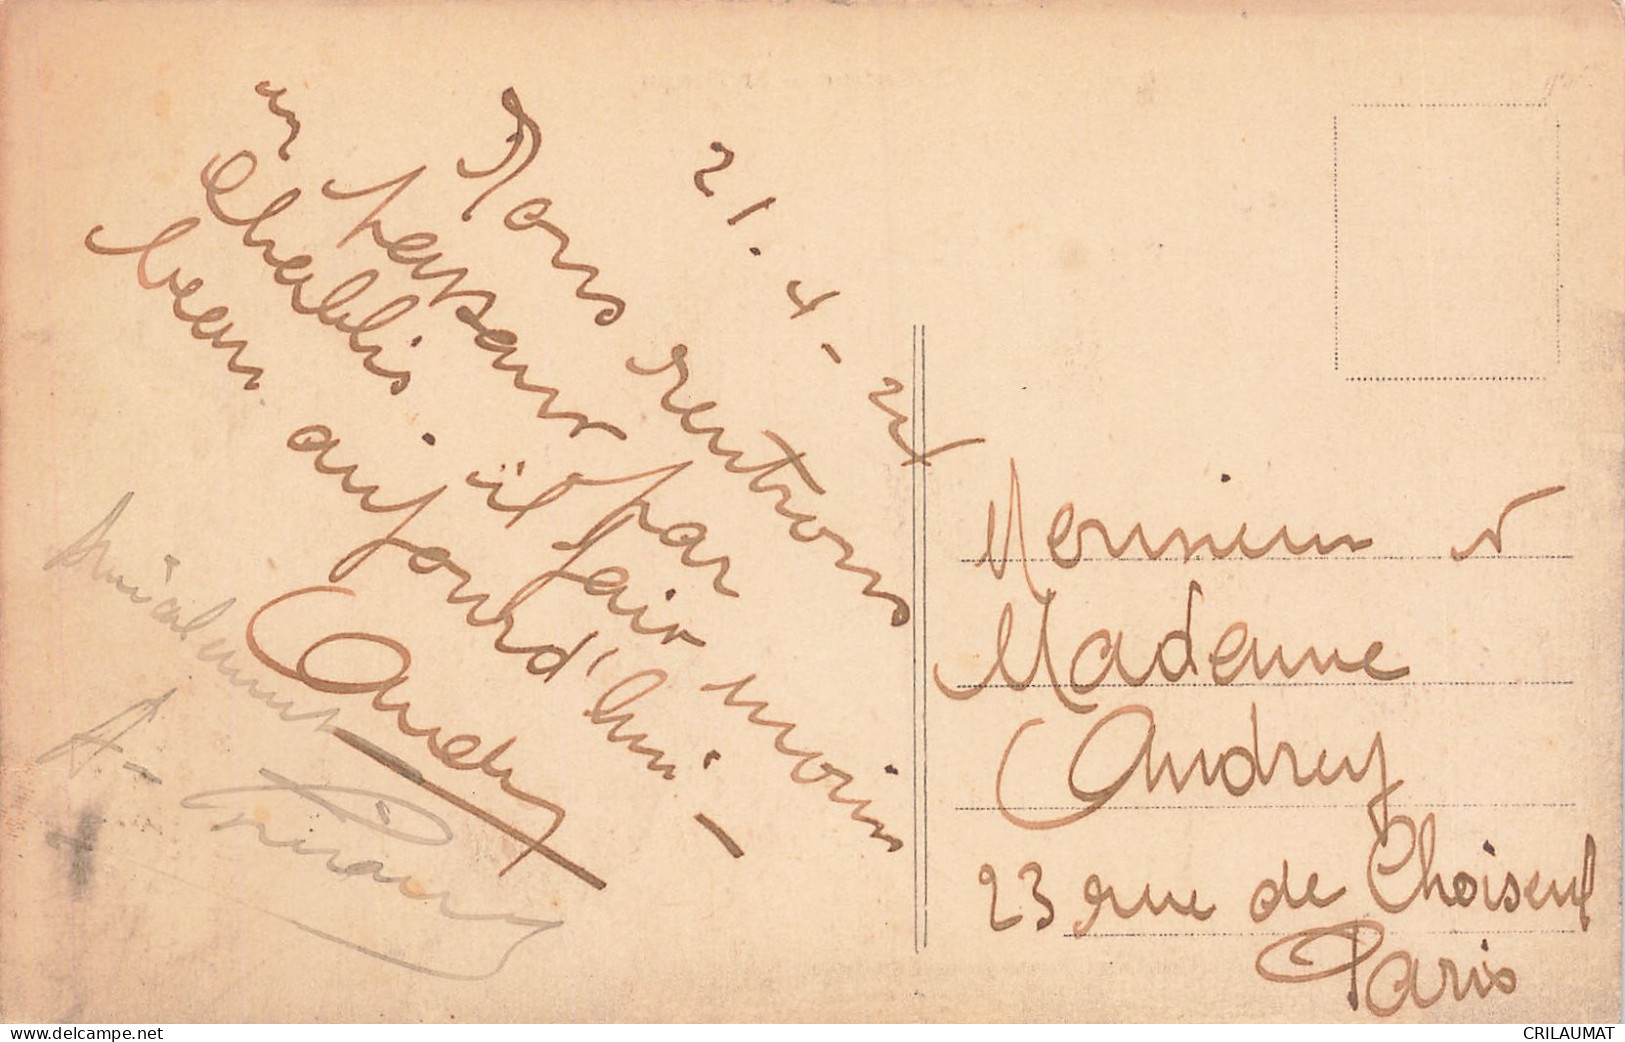 21.4-24
Nous rentrons
en passant par
Chablis. il fait moins
beau aujourd'hui -
Andrey
Amicalement
A-
Monsieur &
Madame
Andrey
23 rue de Choiseul
Paris
www.delcampe.net
CRILAUMAT